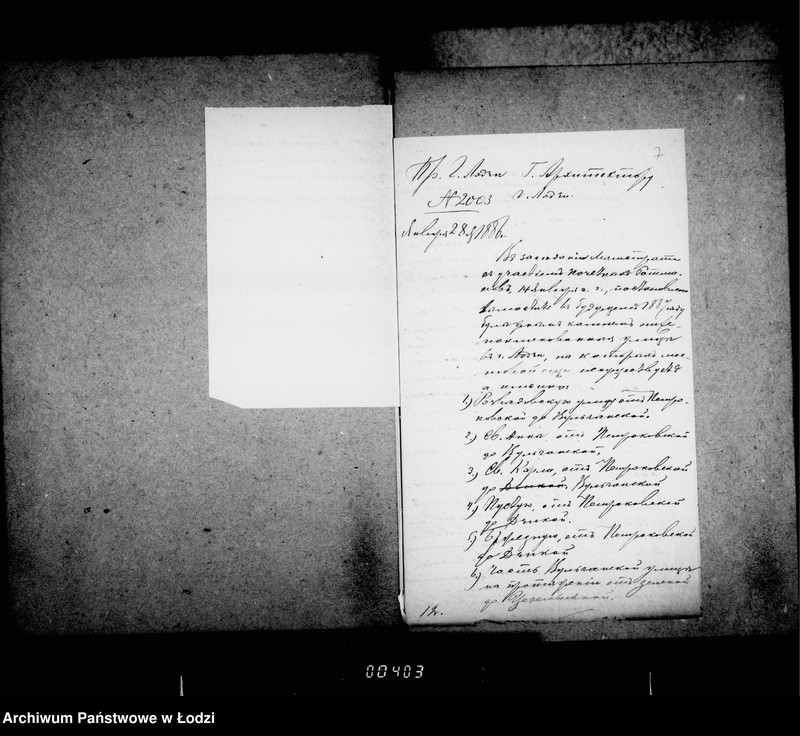 7
Пр. г. Лодзи Г. Архитектору
№ 2003 г. Лодзи.
Января 28 дня 1886 г.
Въ заседании Магистрата
съ участіемъ почетныхъ Ратма-
новъ, января с. г., постановлено
вымостить въ будущемъ 1887 году
булыжнымъ камнемъ ниже-
поименованныя улицы
въ г. Лодзи, на которыхъ мос-
товой еще не существуетъ
а именно:
1) Розвадовскую улицу отъ Петро-
ковской до Вульчанской.
2) Св. Анны, отъ Петроковской
до Вульчанской,
3) Св. Карла, отъ Петроковской
до Дикой. Вульчанской
4) Пустую, отъ Петроковской
до Дикой.
5) отъ Петроковской
до Дикой
6) Часть Вульчанской улицы
на протяженіи отъ Зеленой
до Цегельняной.
12.
00403
Archiwum Państwowe w Łodzi